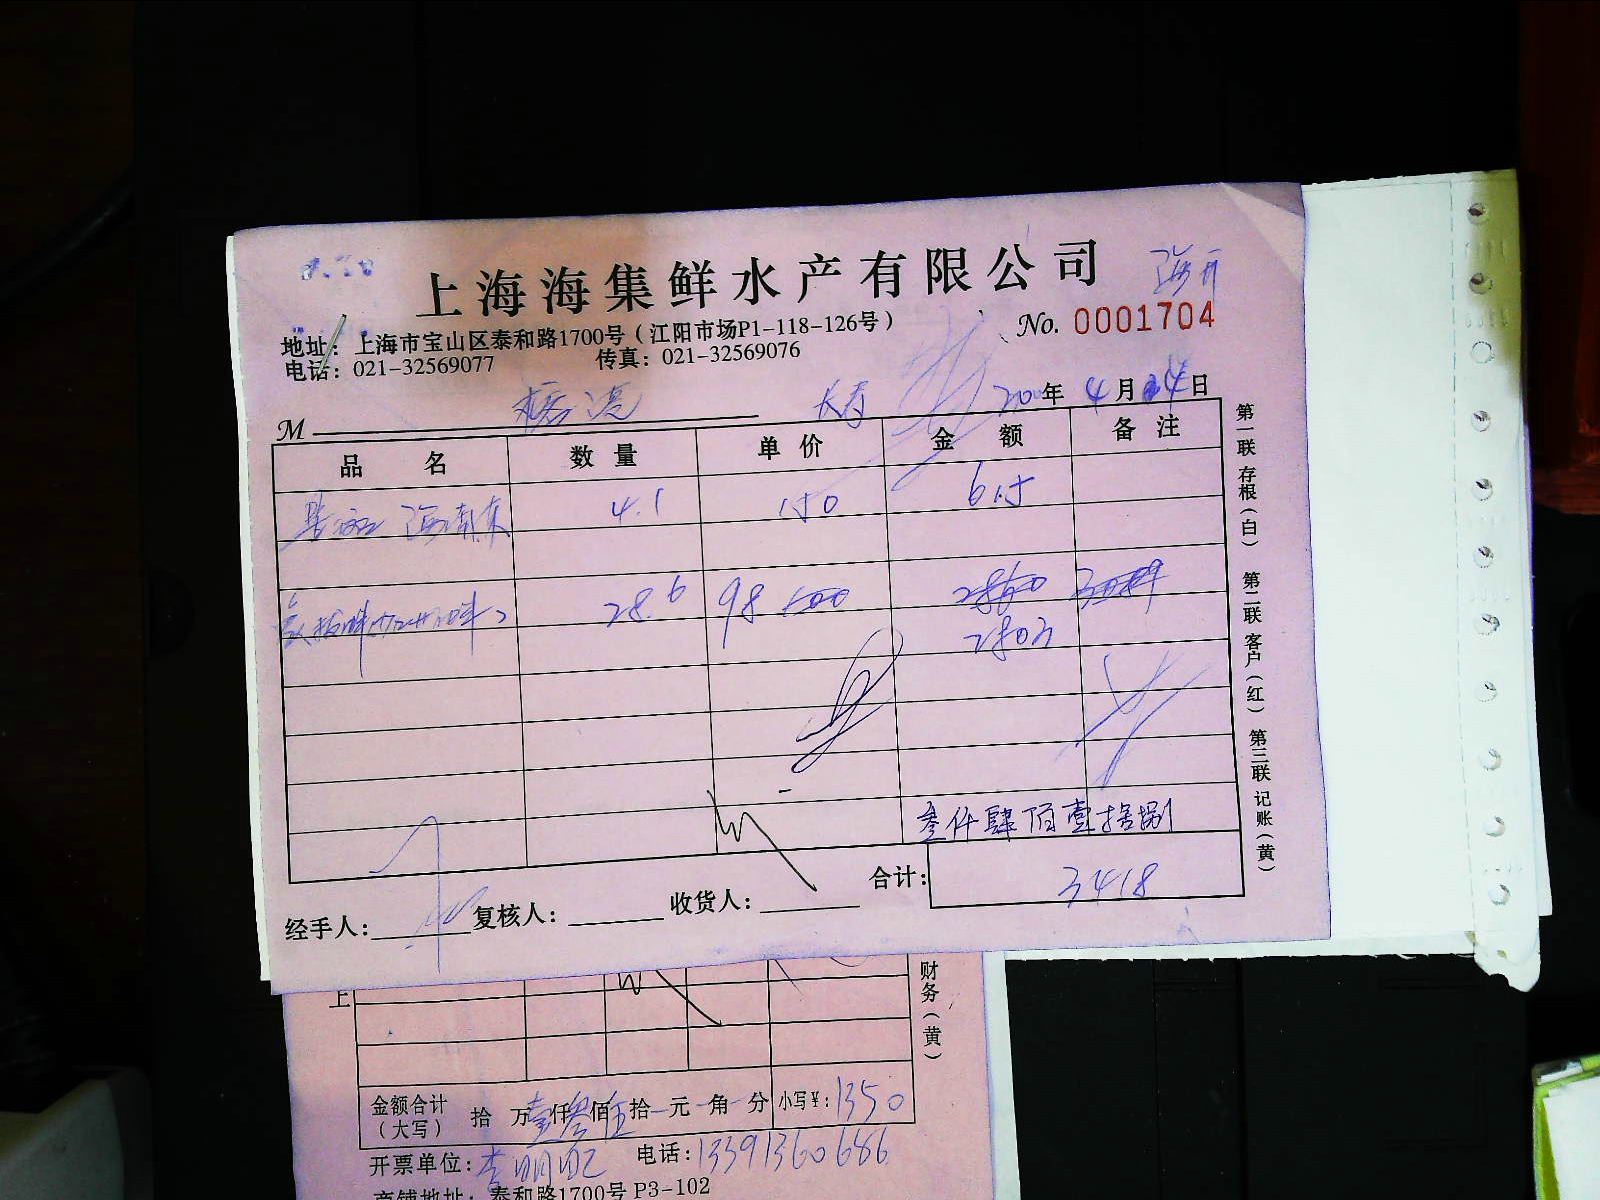 上海海集鲜水产有限公司
地址：上海市宝山区泰和路1700号（江阳市场P1-118-126号）
No. 0001704
电话：021-32569077 传真：021-32569076
年 4月 日
M
品名 数量 单价 金额 备注
4.1 150 615
28.6 98
2803
叁仟肆佰壹拾捌
合计：3418
经手人： 复核人： 收货人：
第一联 存根（白） 第二联 客户（红） 第三联 记账（黄）
财务（黄）
上
金额合计（大写） 拾 万壹仟叁佰伍拾 元 角 分 小写¥：1350
开票单位：李明 电话：13391360686
商铺地址：泰和路1700号 P3-102